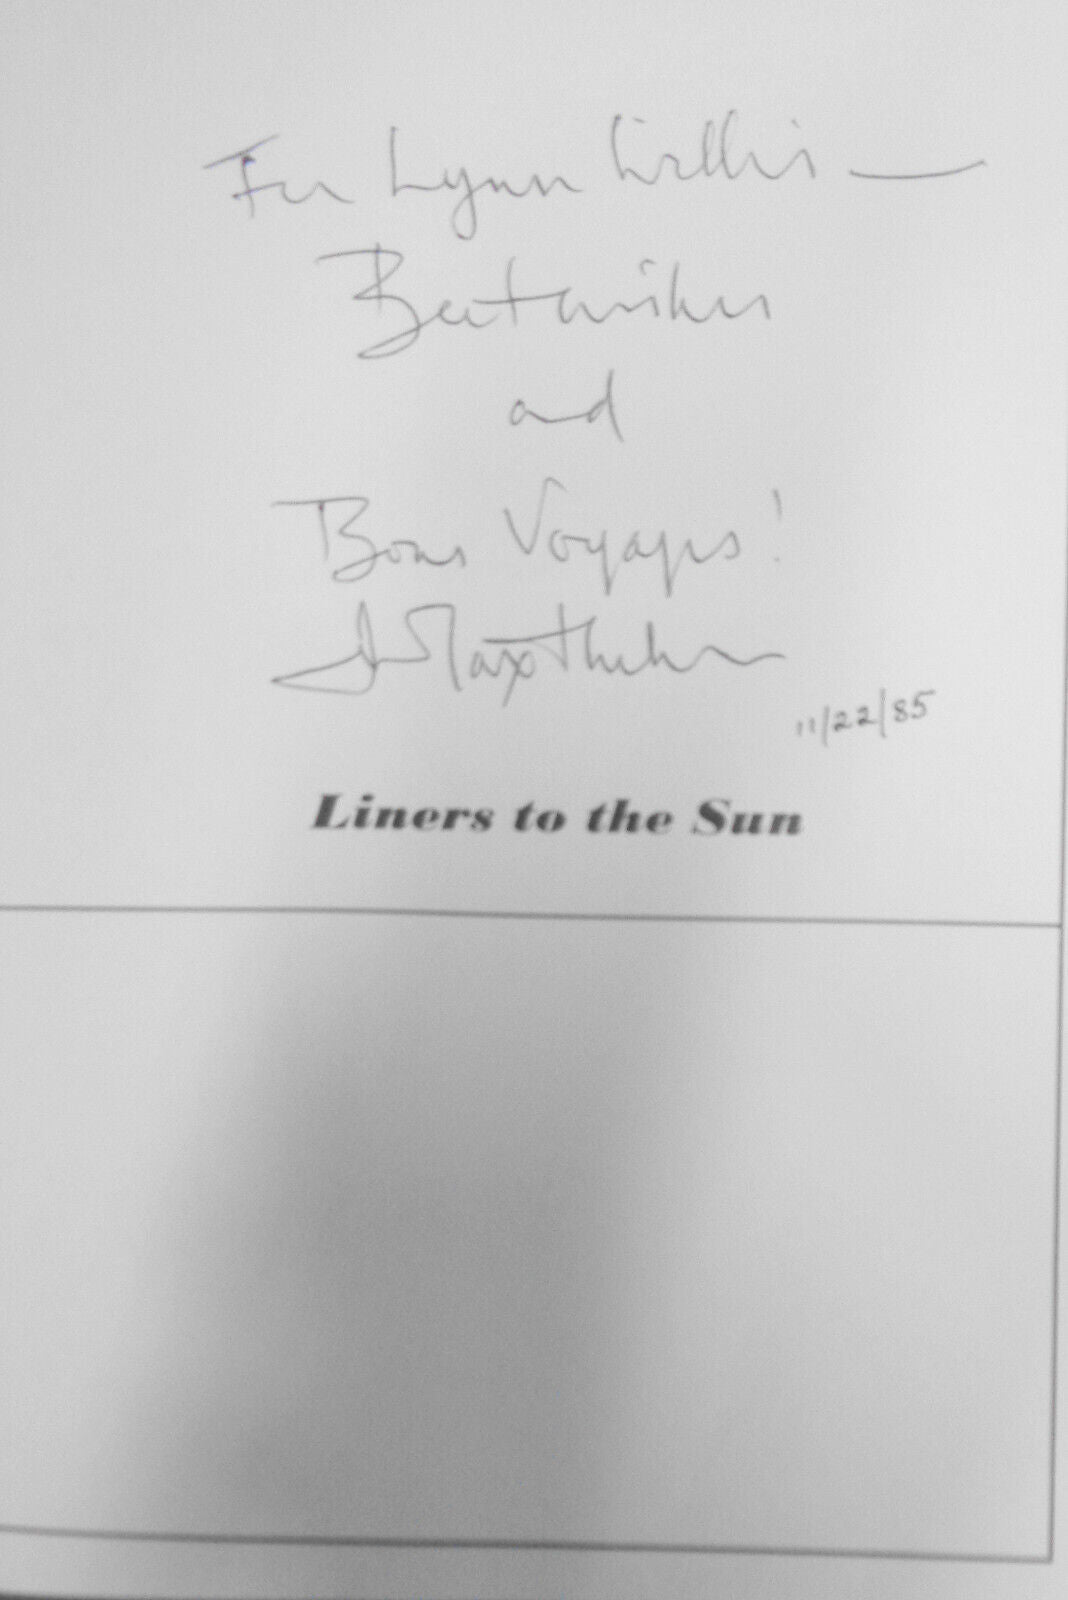 For Lynn Willis —
Best wishes
and
Bons Voyages!
J Maxtone
11/22/85
Liners to the Sun